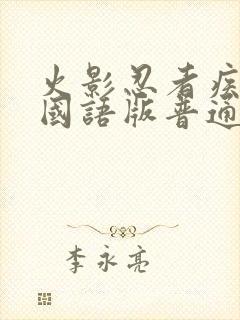 火影忍者疾
國語版普通
李永亮